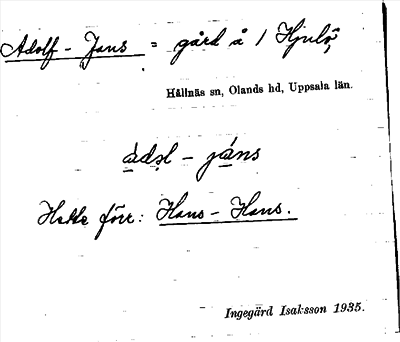 Adolf - Jans = gård å / Hjulö,
Hållnäs sn, Olands hd, Uppsala län.
àdol - jáns
Hette förr: Hans - Hans.
Ingegärd Isaksson 1935.